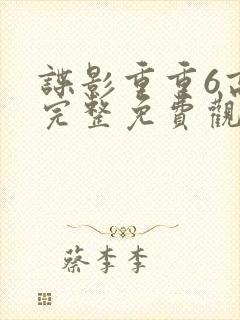 諜影重重6高
完整免費觀
蔡李李